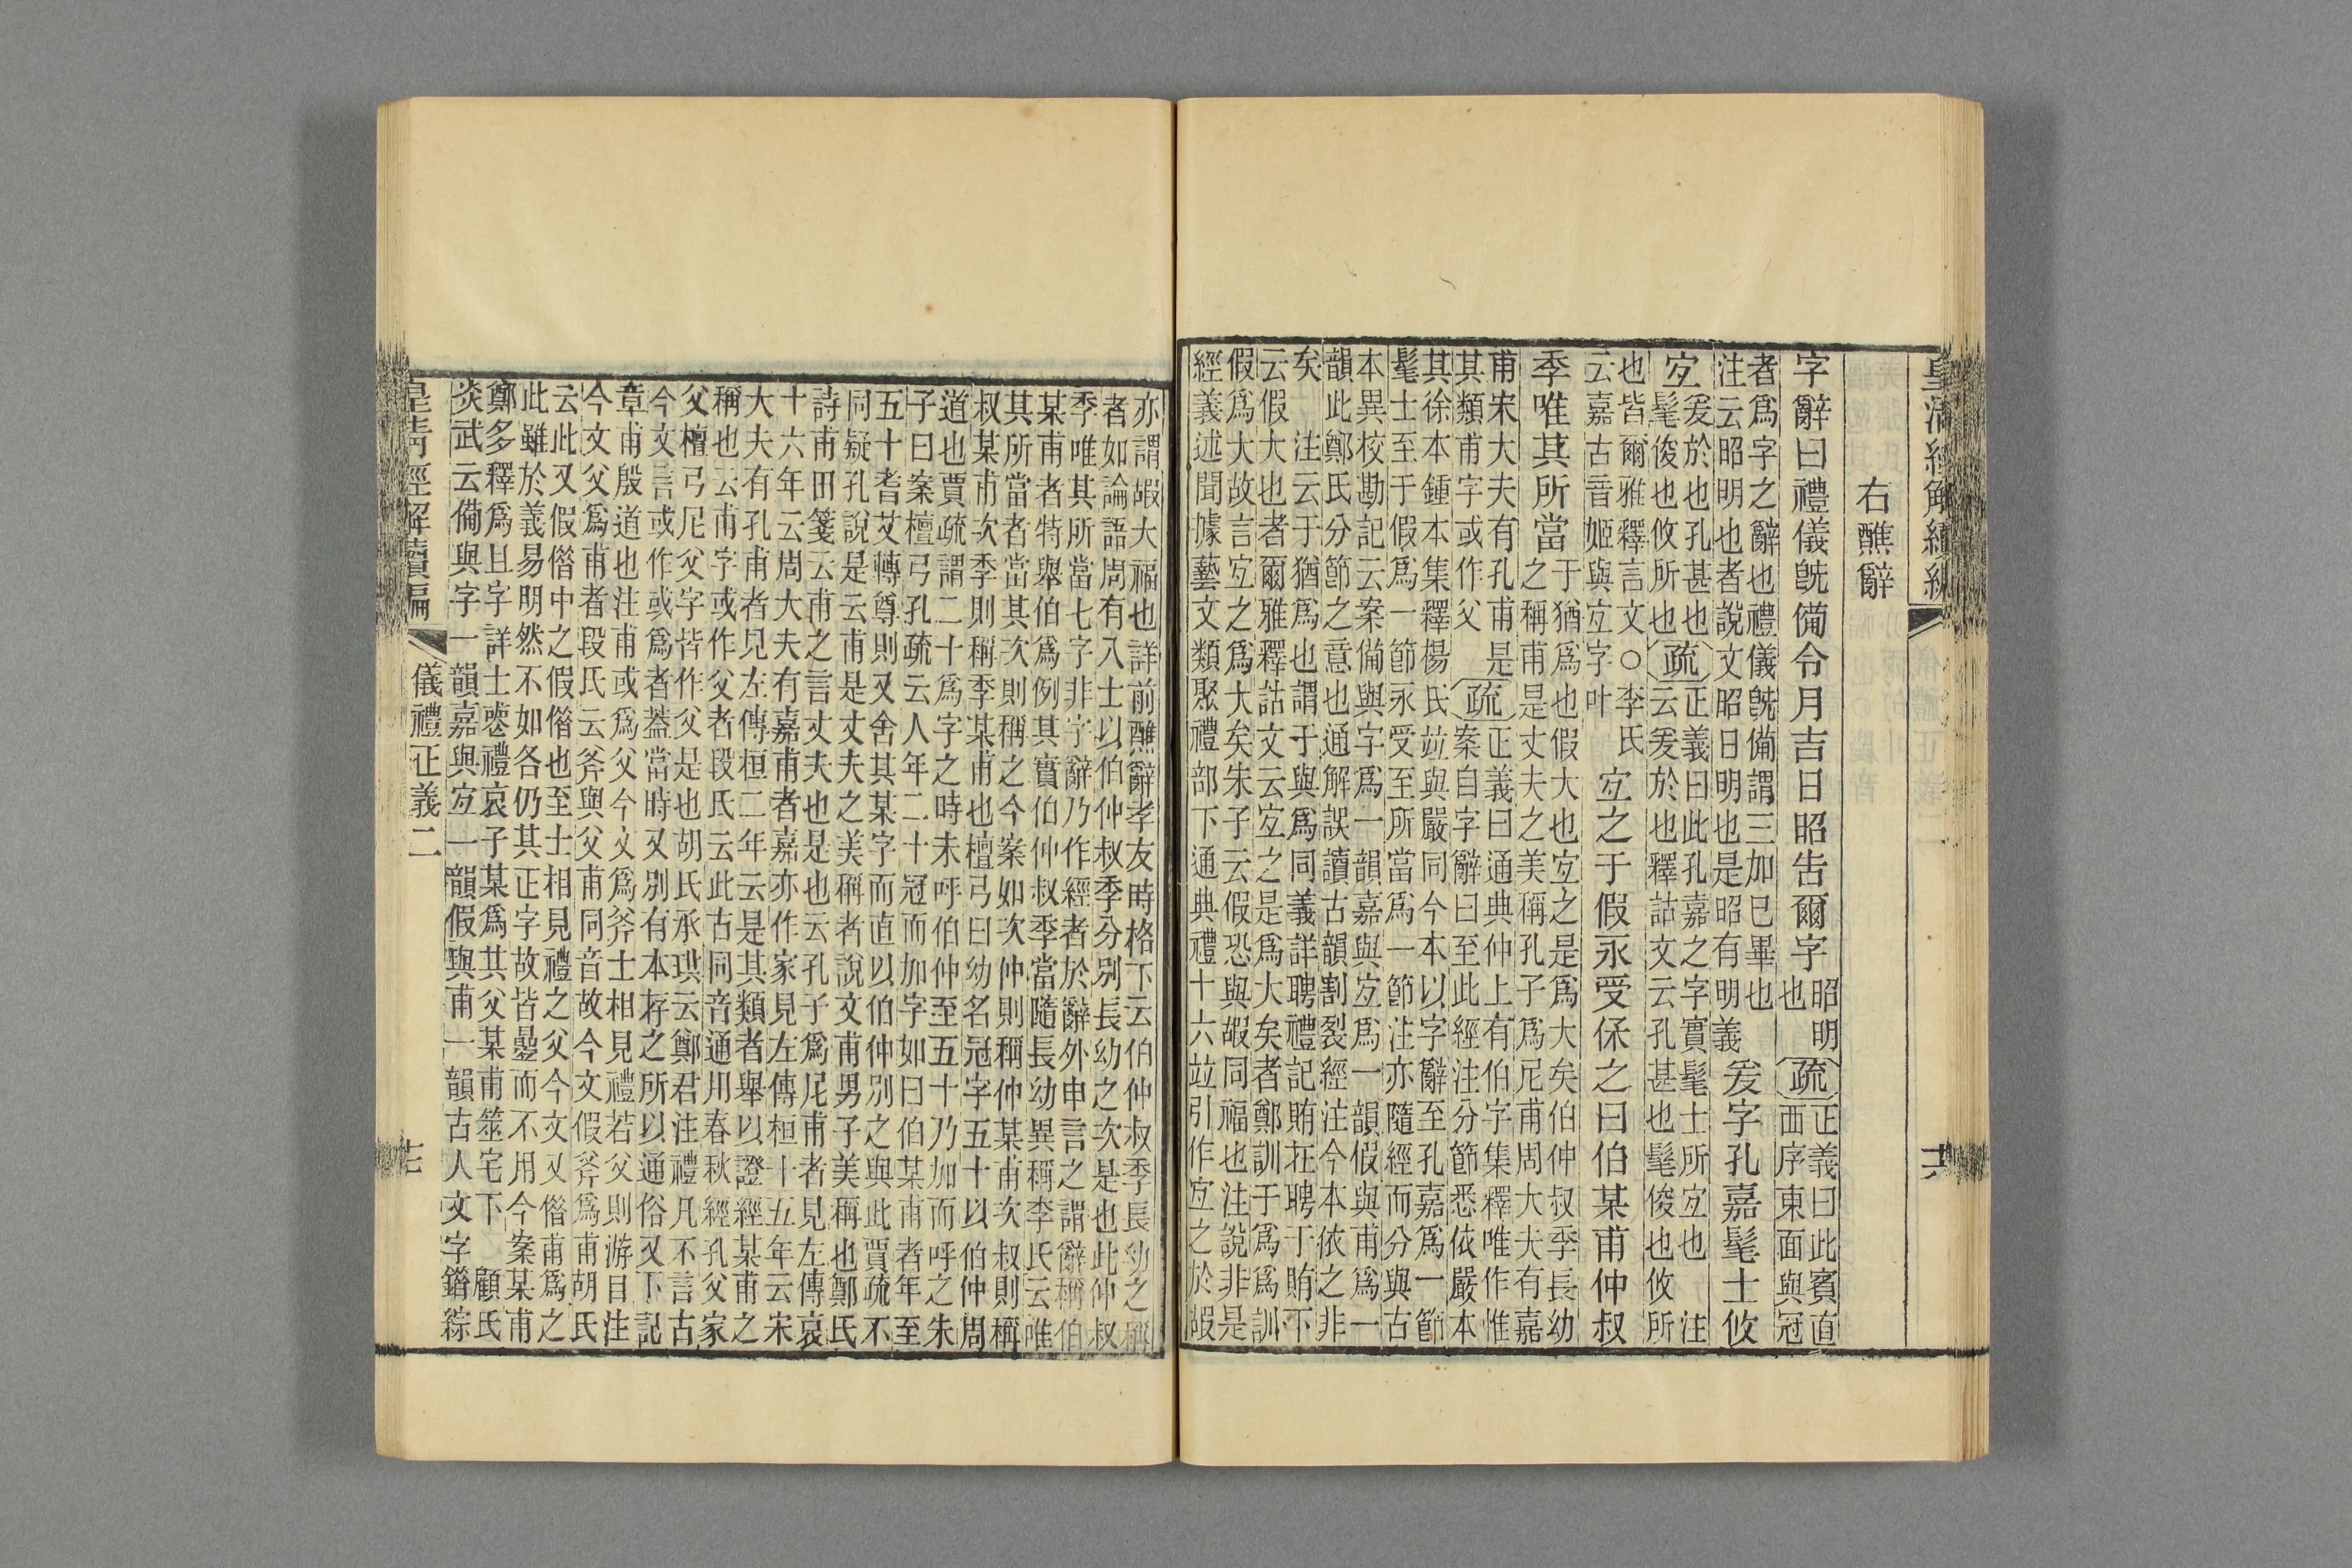 皇清經解續編
十六
右醮辭
字辭曰禮儀旣備令月吉日昭告爾字
昭明
也
疏
正義曰此賓直
西序東面與冠
者爲字之辭也禮儀旣備謂三加已畢也
注云昭明也者說文昭日明也是昭有明義
爰字孔嘉髦士攸
宐
爰於也孔甚也
髦俊也攸所也
疏
正義曰此孔嘉之字實髦士所宐也 注
云爰於也釋詁文云孔甚也髦俊也攸所
也皆爾雅釋言文○李氏
云嘉古音姬與宐字叶
宐之于假永受保之曰伯某甫仲叔
季唯其所當
于猶爲也假大也宐之是爲大矣伯仲叔季長幼
之稱甫是丈夫之美稱孔子爲尼甫周大夫有嘉
甫宋大夫有孔甫是
其類甫字或作父
疏
正義曰通典仲上有伯字集釋唯作惟
案自字辭曰至此經注分節悉依嚴本
其徐本鍾本集釋楊氏竝與嚴同今本以字辭至孔嘉爲一節
髦士至于假爲一節永受至所當爲一節注亦隨經而分與古
本異校勘記云案備與字爲一韻嘉與宐爲一韻假與甫爲一
韻此鄭氏分節之意也通解誤讀古韻割裂經注今本依之非
矣 注云于猶爲也謂于與爲同義詳聘禮記賄在聘于賄下
云假大也者爾雅釋詁文云宐之是爲大矣者鄭訓于爲爲訓
假爲大故言宐之爲大矣朱子云假恐與嘏同福也注說非是
經義述聞據藝文類聚禮部下通典禮十六竝引作宐之於嘏
亦謂嘏大福也詳前醮辭孝友時格下云伯仲叔季長幼之稱
者如論語周有八士以伯仲叔季分別長幼之次是也此仲叔
季唯其所當七字非字辭乃作經者於辭外申言之謂辭稱伯
某甫者特舉伯爲例其實伯仲叔季當隨長幼異稱李氏云唯
其所當者當其次則稱之今案如次仲則稱仲某甫次叔則稱
叔某甫次季則稱季某甫也檀弓曰幼名冠字五十以伯仲周
道也賈疏謂二十爲字之時未呼伯仲至五十乃加而呼之朱
子曰案檀弓孔疏云人年二十冠而加字如曰伯某甫者年至
五十耆艾轉尊則又舍其某字而直以伯仲別之與此賈疏不
同疑孔說是云甫是丈夫之美稱者說文甫男子美稱也鄭氏
詩甫田箋云甫之言丈夫也是也云孔子爲尼甫者見左傳哀
十六年云周大夫有嘉甫者嘉亦作家見左傳桓十五年云宋
大夫有孔甫者見左傳桓二年云是其類者舉以證經某甫之
稱也云甫字或作父者段氏云此古同音通用春秋經孔父家
父檀弓尼父字皆作父是也胡氏承珙云鄭君注禮凡不言古
今文言或作或爲者蓋當時又別有本存之所以通俗又下記
章甫殷道也注甫或爲父今文爲斧士相見禮若父則游目注
今文父爲甫者段氏云斧與父甫同音故今文假斧爲甫胡氏
云此又假僭中之假僭也至士相見禮之父今文又僭甫爲之
此雖於義易明然不如各仍其正字故皆疊而不用今案某甫
鄭多釋爲且字詳士喪禮哀子某爲其父某甫筮宅下 顧氏
炎武云備與字一韻嘉與宐一韻假與甫一韻古人文字錯綜
皇清經解續編
儀禮正義二
七